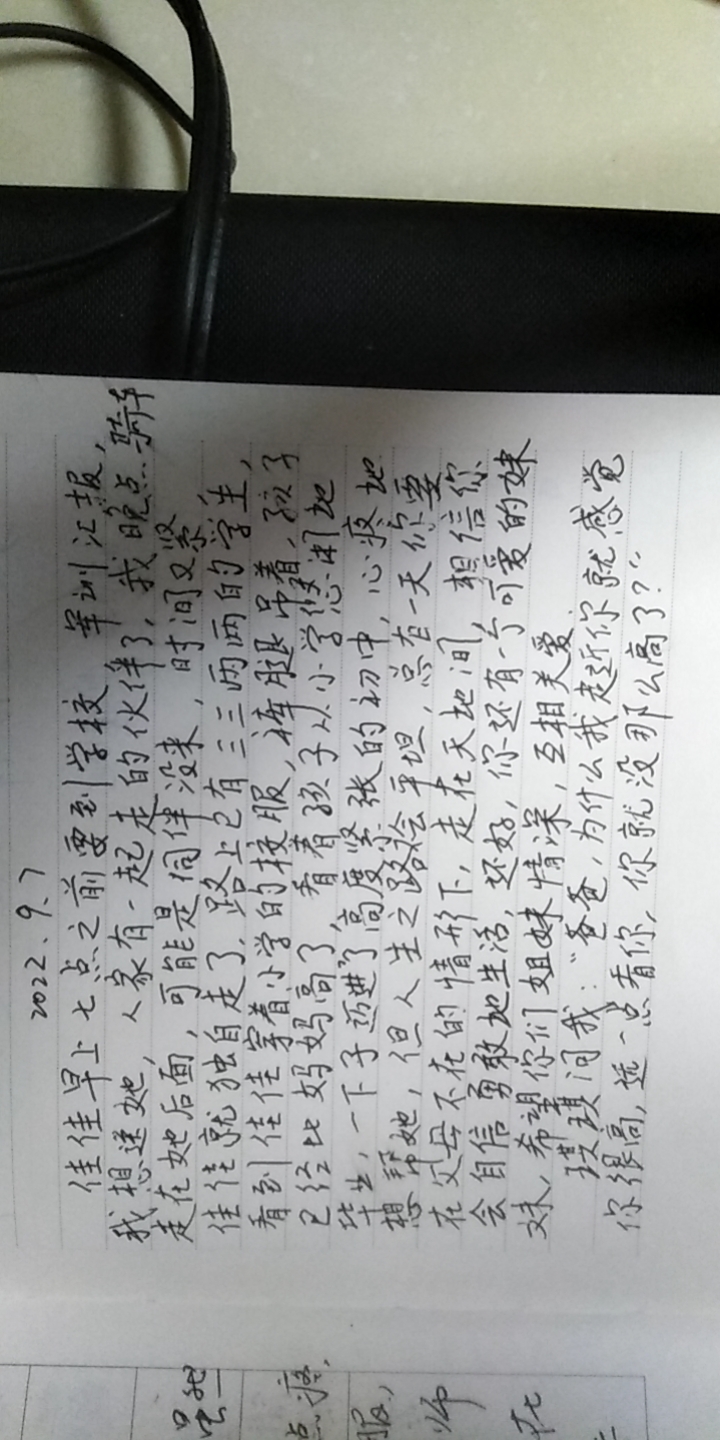 2022.9.7
佳佳早上七点之前要到学校 军训汇报,
我想送她, 人家有一起走的伙伴了, 我晚点骑车
走在她后面, 可能是同伴没来, 时间又紧
佳佳就独自走了, 路上已有三三两两的学生,
看到佳佳穿着小学的校服, 裤腿吊着, 孩子
已经比妈妈高了, 看着孩子从小学悠闲地
毕业, 一下子迈进了高度紧张的初中, 心疼地
想帮她, 但人生之路途会平坦, 总有一天你要
在父母不在的情形下, 走在天地间, 相信你
会自信勇敢地生活, 还好, 你还有个可爱的妹
妹, 希望你们姐妹情深, 互相关爱.
琪琪问我:“爸爸, 为什么我走近你就感觉
你很高, 远一点看你, 你就没那么高了?”
点疼,
服,
师
在